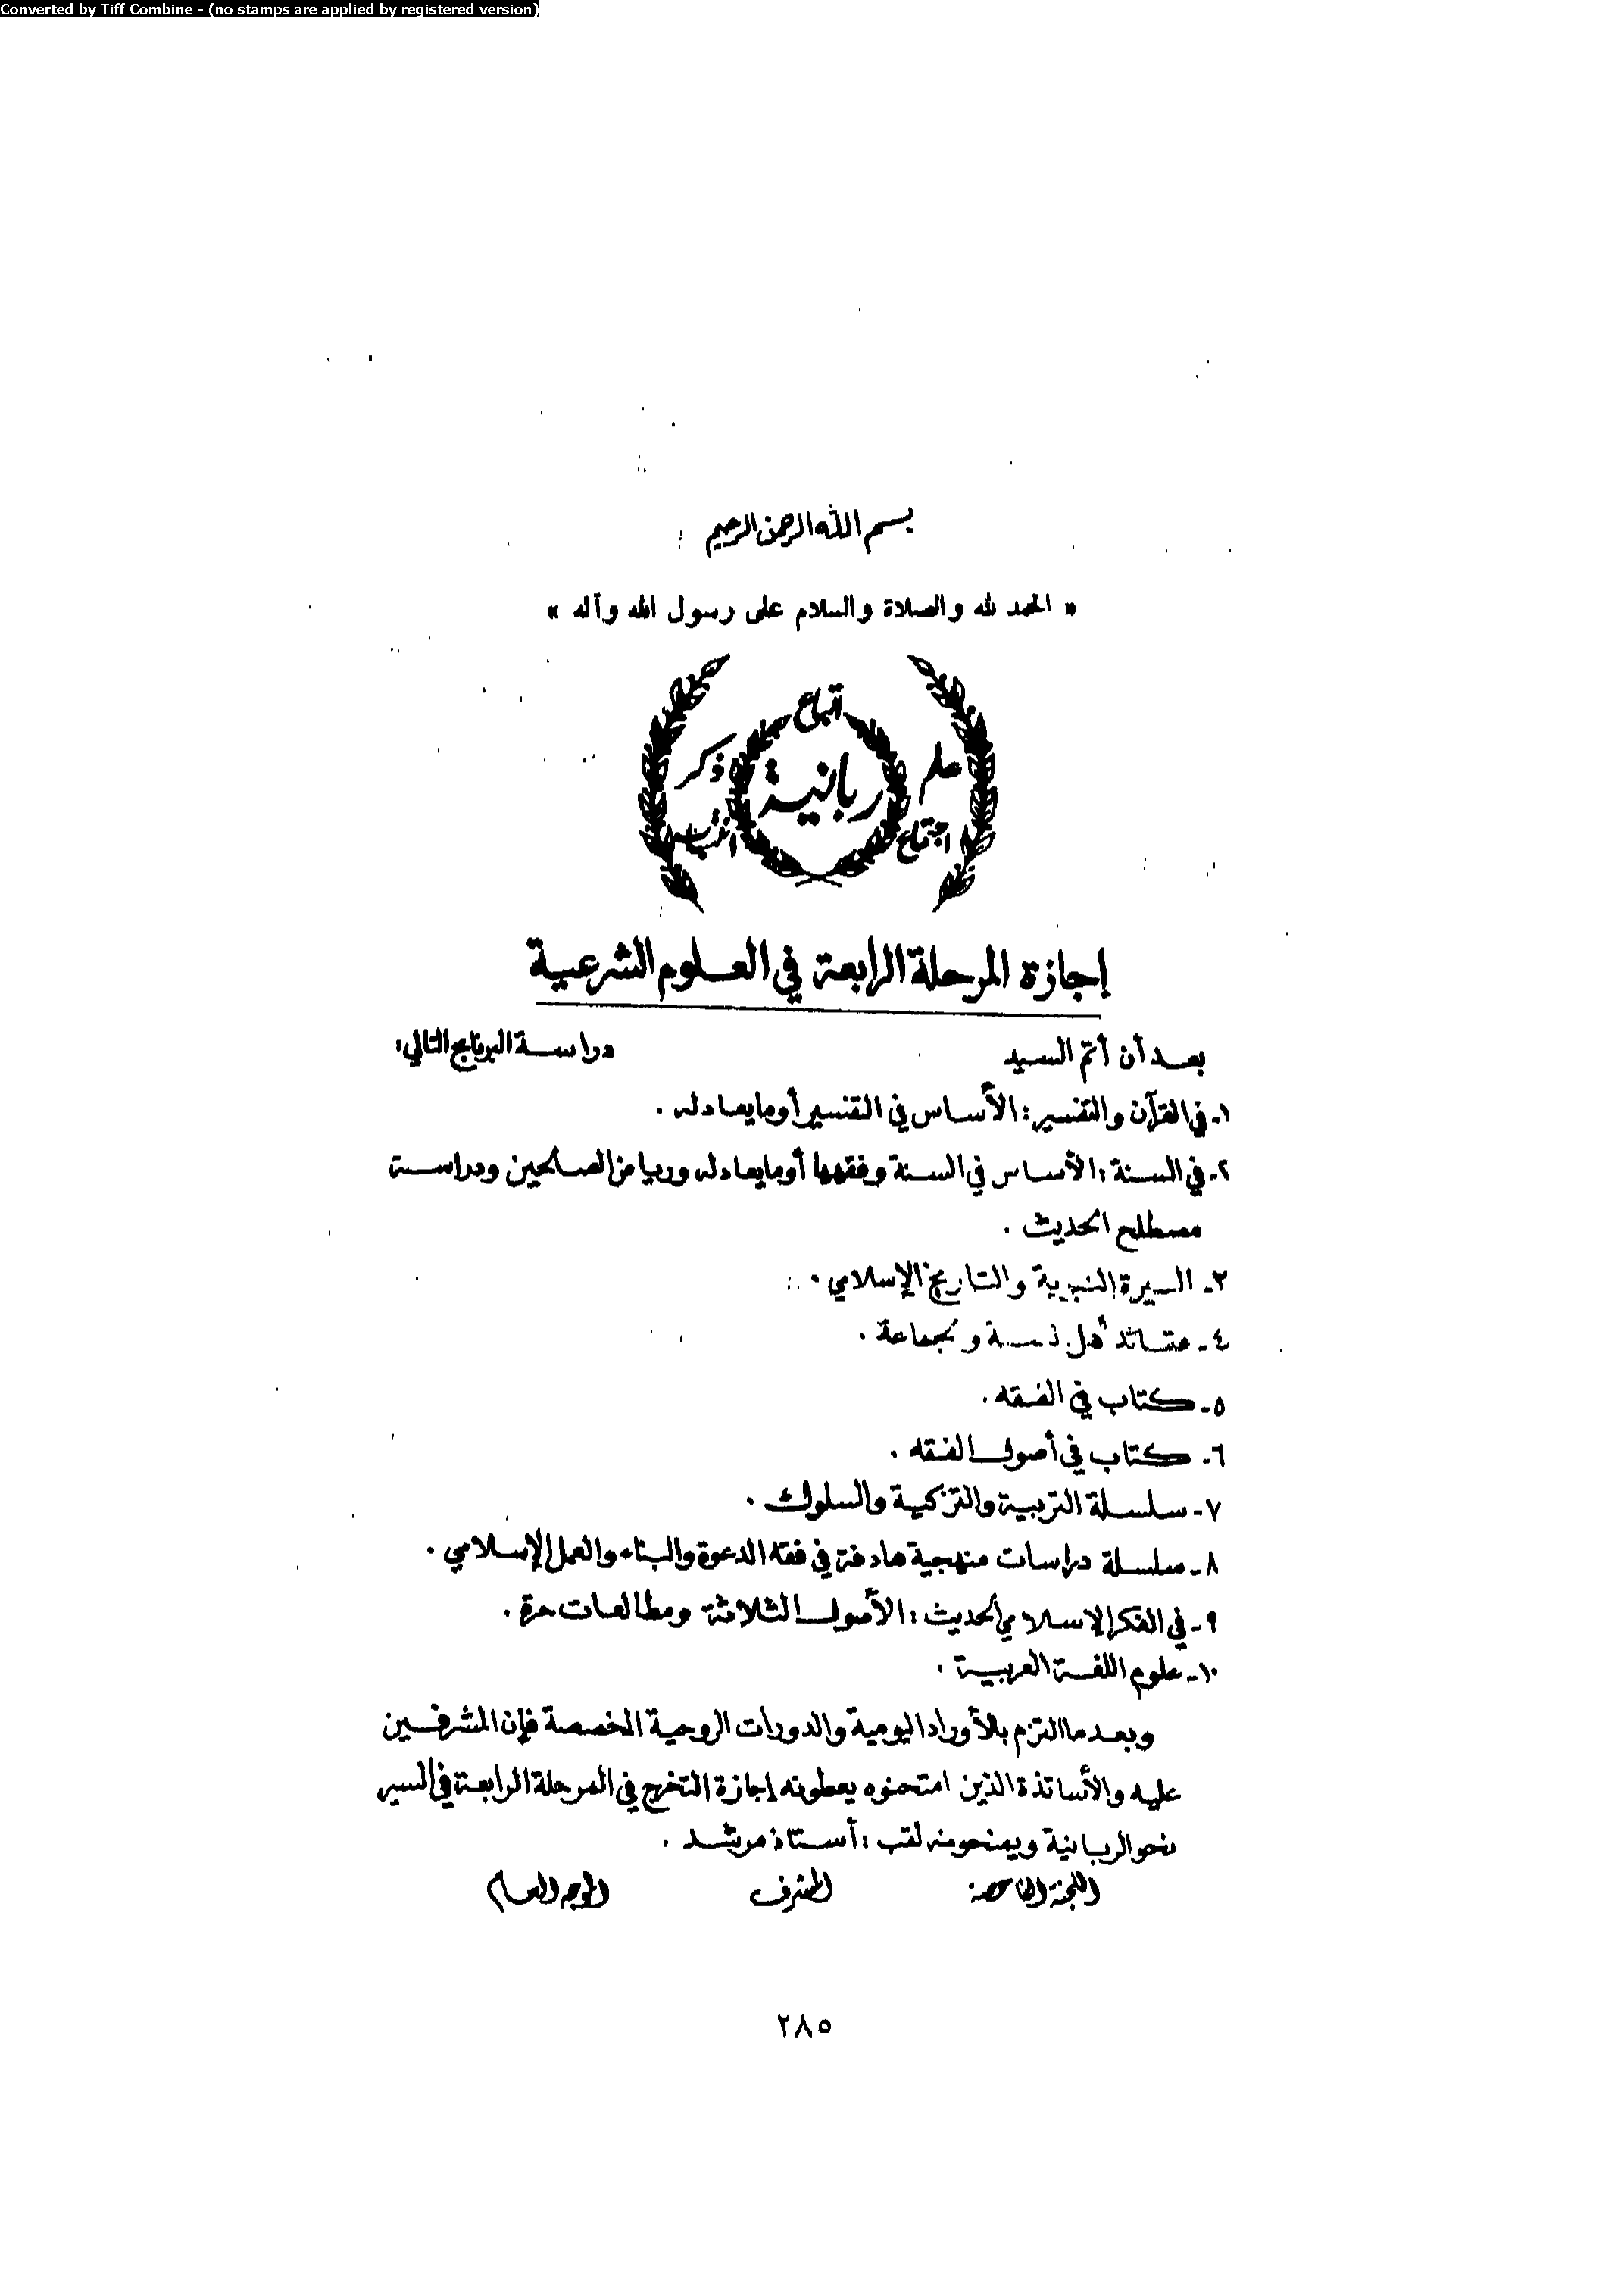 Converted by Tiff Combine - (no stamps are applied by registered version)
بسم الله الرحمن الرحيم
« الحمد لله والصلاة والسلام على رسول الله وآله »
اتباع
علم
ذكر
ربانية
اجتماع
إجازة المرحلة الرابعة في العلوم الشرعية
بعد أن أتم السيد دراسة البرنامج التالي:
١- في القرآن والتفسير: الأساس في التفسير أو ما يعادله .
٢- في السنة : الأساس في السنة وفقهها أو ما يعادله ورياض الصالحين ودراسة
مصطلح الحديث .
٣- السيرة النبوية والتاريخ الإسلامي .
٤- عقائد أهل السنة والجماعة .
٥- كتاب في الفقه .
٦- كتاب في أصول الفقه .
٧- سلسلة التربية والتزكية والسلوك .
٨- سلسلة دراسات منهجية هادفة في فقه الدعوة والبناء والعمل الإسلامي .
٩- في الفكر الإسلامي الحديث : الأصول الثلاثة ومطالعات حرة .
١٠- علوم اللغة العربية .
وبعد ما التزم بالأوراد اليومية والدورات الروحية المخصصة فإن المشرفين
عليه والأساتذة الذين امتحنوه يعطونه إجازة التخرج في المرحلة الرابعة في السير
نحو الربانية ويمنحونه لقب : أستاذ مرشد .
اللجنة الفاحصة المشرف الموجه العام
٢٨٥